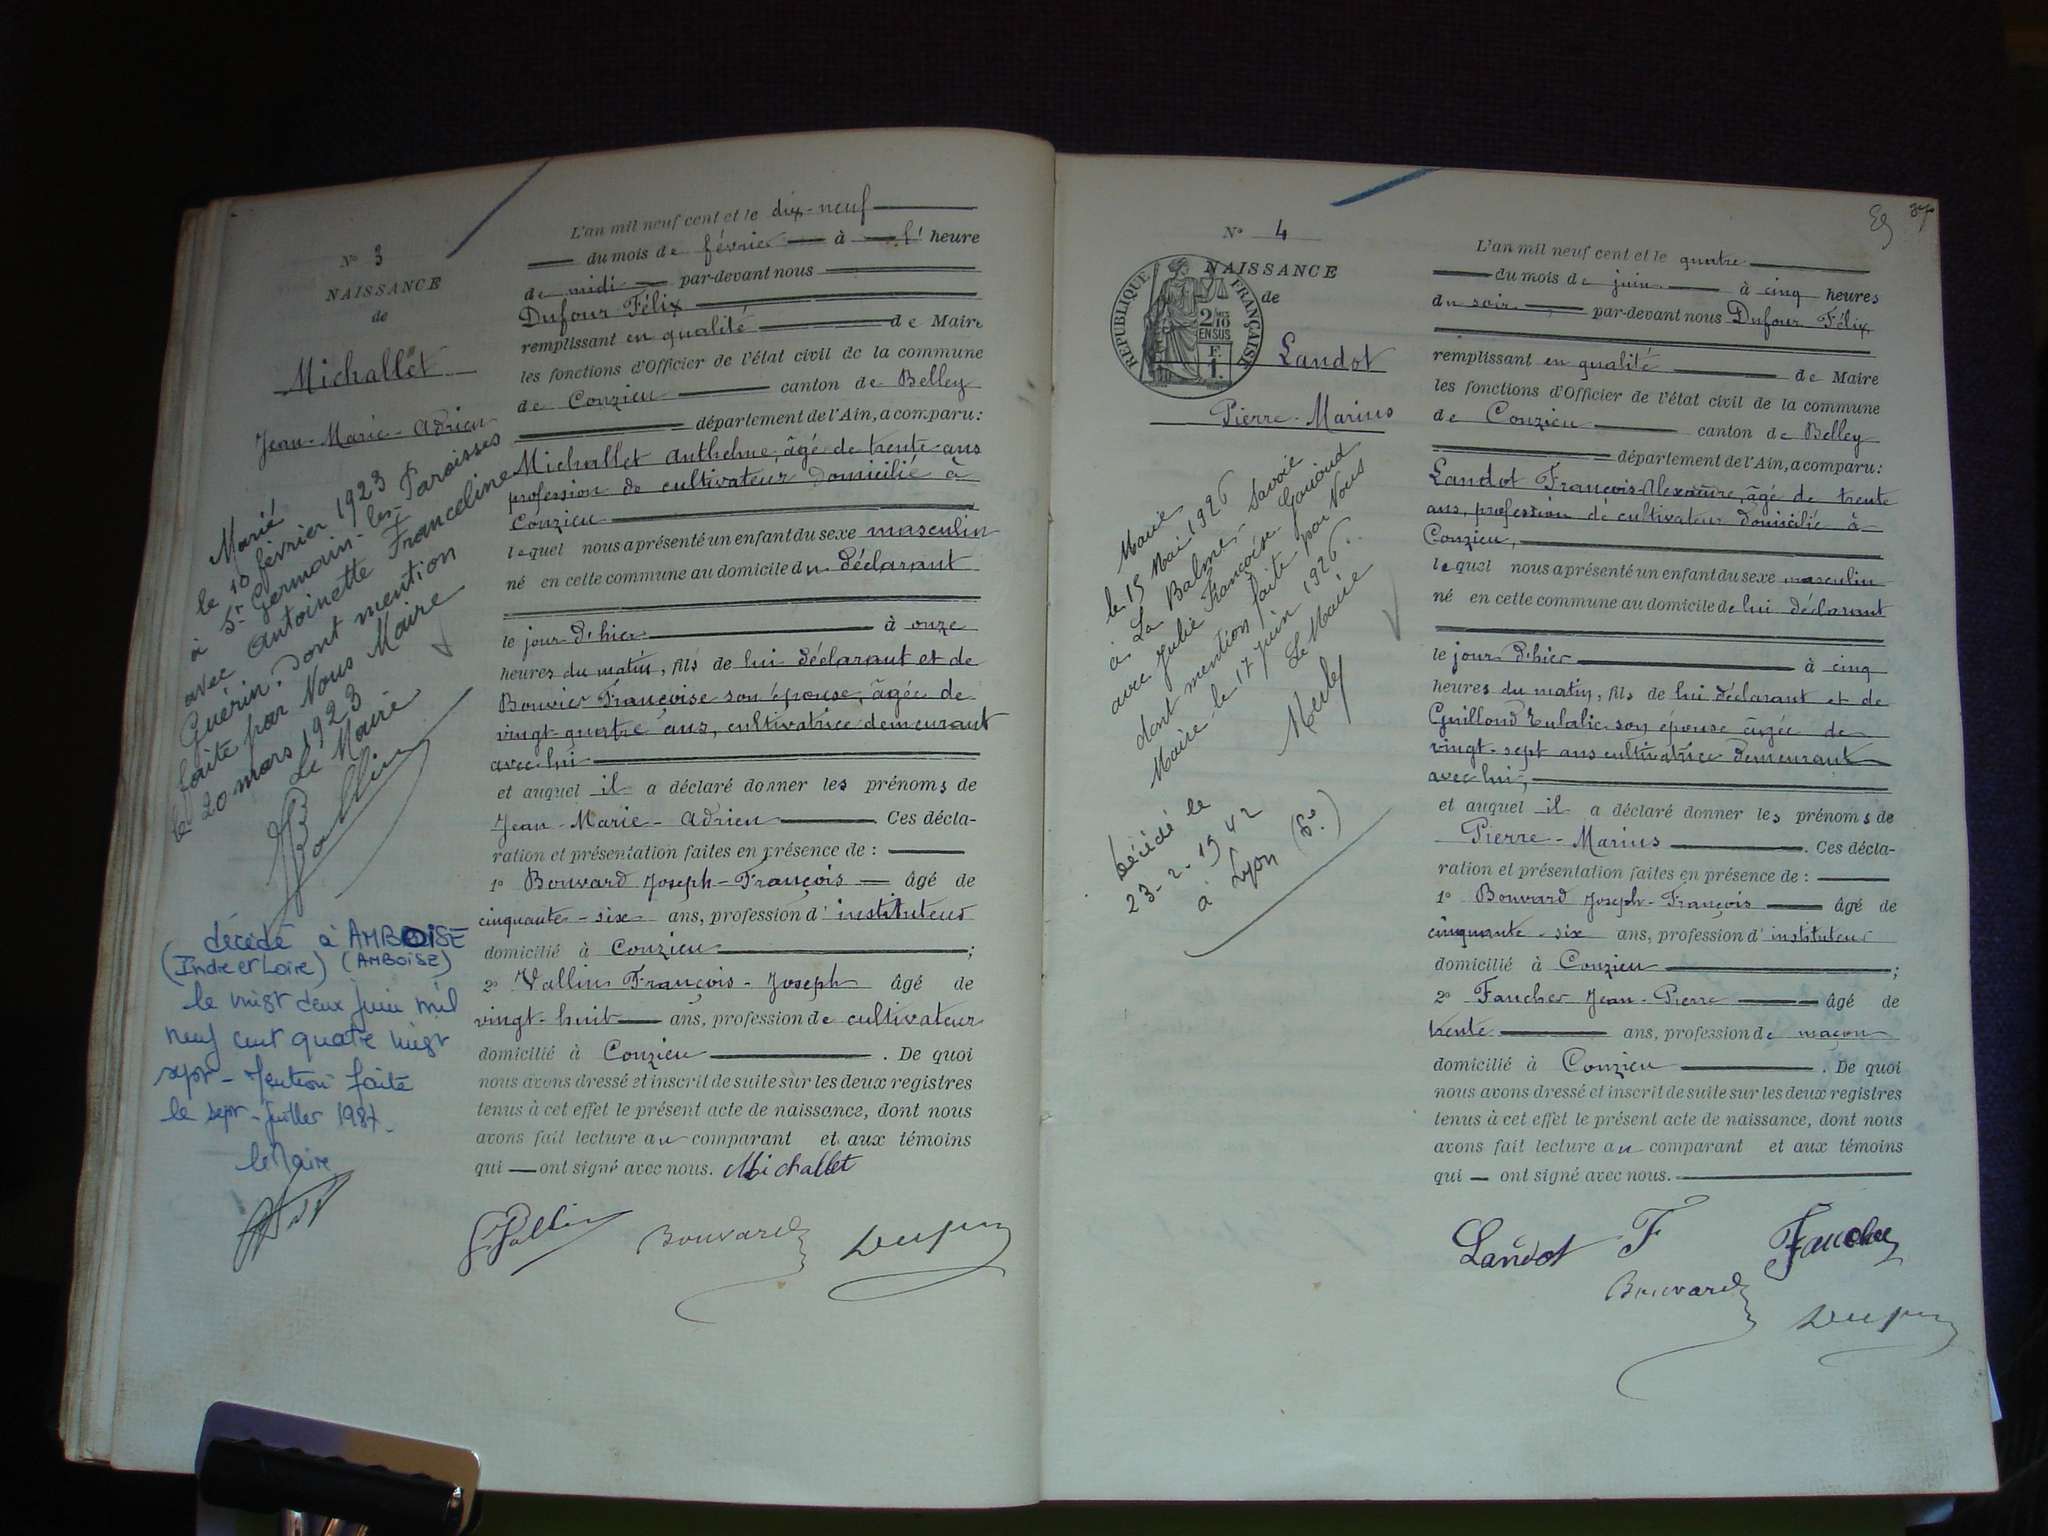 N° 3
NAISSANCE
de
Michallet
Jean-Marie-Adrien
Marié
le 10 février 1923
à St Germain-les-Paroisses
avec Antoinette Franceline
Guérin. Dont mention
faite par Nous Maire
le 20 mars 1923
Le Maire
décédé à AMBOISE
(Indre et Loire) (AMBOISE)
le vingt deux juin mil
neuf cent quatre vingt
sept - Mention faite
le sept - Juillet 1987.
le Maire
L'an mil neuf cent et le dix-neuf
du mois de février à l' heure
de midi par-devant nous
Dufour Félix
remplissant en qualité de Maire
les fonctions d'Officier de l'état civil de la commune
de Conzieu canton de Belley
département de l'Ain, a comparu:
Michallet Anthelme, âgé de trente ans
profession de cultivateur domicilié à
Conzieu
lequel nous a présenté un enfant du sexe masculin
né en cette commune au domicile du déclarant
le jour d'hier à onze
heures du matin, fils de lui déclarant et de
Bouvier Françoise son épouse, âgée de
vingt-quatre ans, cultivatrice demeurant
avec lui
et auquel il a déclaré donner les prénoms de
Jean-Marie-Adrien. Ces décla-
ration et présentation faites en présence de :
1° Bouvard Joseph-François âgé de
cinquante-six ans, profession d'instituteur
domicilié à Conzieu ;
2° Vallin François-Joseph âgé de
vingt-huit ans, profession de cultivateur
domicilié à Conzieu . De quoi
nous avons dressé et inscrit de suite sur les deux registres
tenus à cet effet le présent acte de naissance, dont nous
avons fait lecture au comparant et aux témoins
qui ont signé avec nous. Michallet
Bouvard
N° 4
NAISSANCE
de
RÉPUBLIQUE FRANÇAISE
2/10
EN SUS
F.
1.
Landot
Pierre-Marius
Marié
le 15 Mai 1926
à La Balme, Savoie
avec Julie Françoise
dont mention faite par Nous
Maire le 17 juin 1926.
Le Maire
Décédé le
23-2-1942
à Lyon
37
L'an mil neuf cent et le quatre
du mois de juin à cinq heures
du soir par-devant nous Dufour Félix
remplissant en qualité de Maire
les fonctions d'Officier de l'état civil de la commune
de Conzieu canton de Belley
département de l'Ain, a comparu:
Landot François-Alexandre, âgé de trente
ans, profession de cultivateur domicilié à
Conzieu,
lequel nous a présenté un enfant du sexe masculin
né en cette commune au domicile de lui déclarant
le jour d'hier à cinq
heures du matin, fils de lui déclarant et de
Guilloud Eulalie son épouse âgée de
vingt-sept ans cultivatrice demeurant
avec lui,
et auquel il a déclaré donner les prénoms de
Pierre-Marius. Ces décla-
ration et présentation faites en présence de :
1° Bouvard Joseph-François âgé de
cinquante-six ans, profession d'instituteur
domicilié à Conzieu ;
2° Faucher Jean-Pierre âgé de
trente ans, profession de maçon
domicilié à Conzieu . De quoi
nous avons dressé et inscrit de suite sur les deux registres
tenus à cet effet le présent acte de naissance, dont nous
avons fait lecture au comparant et aux témoins
qui ont signé avec nous.
Landot F Faucher
Bouvard